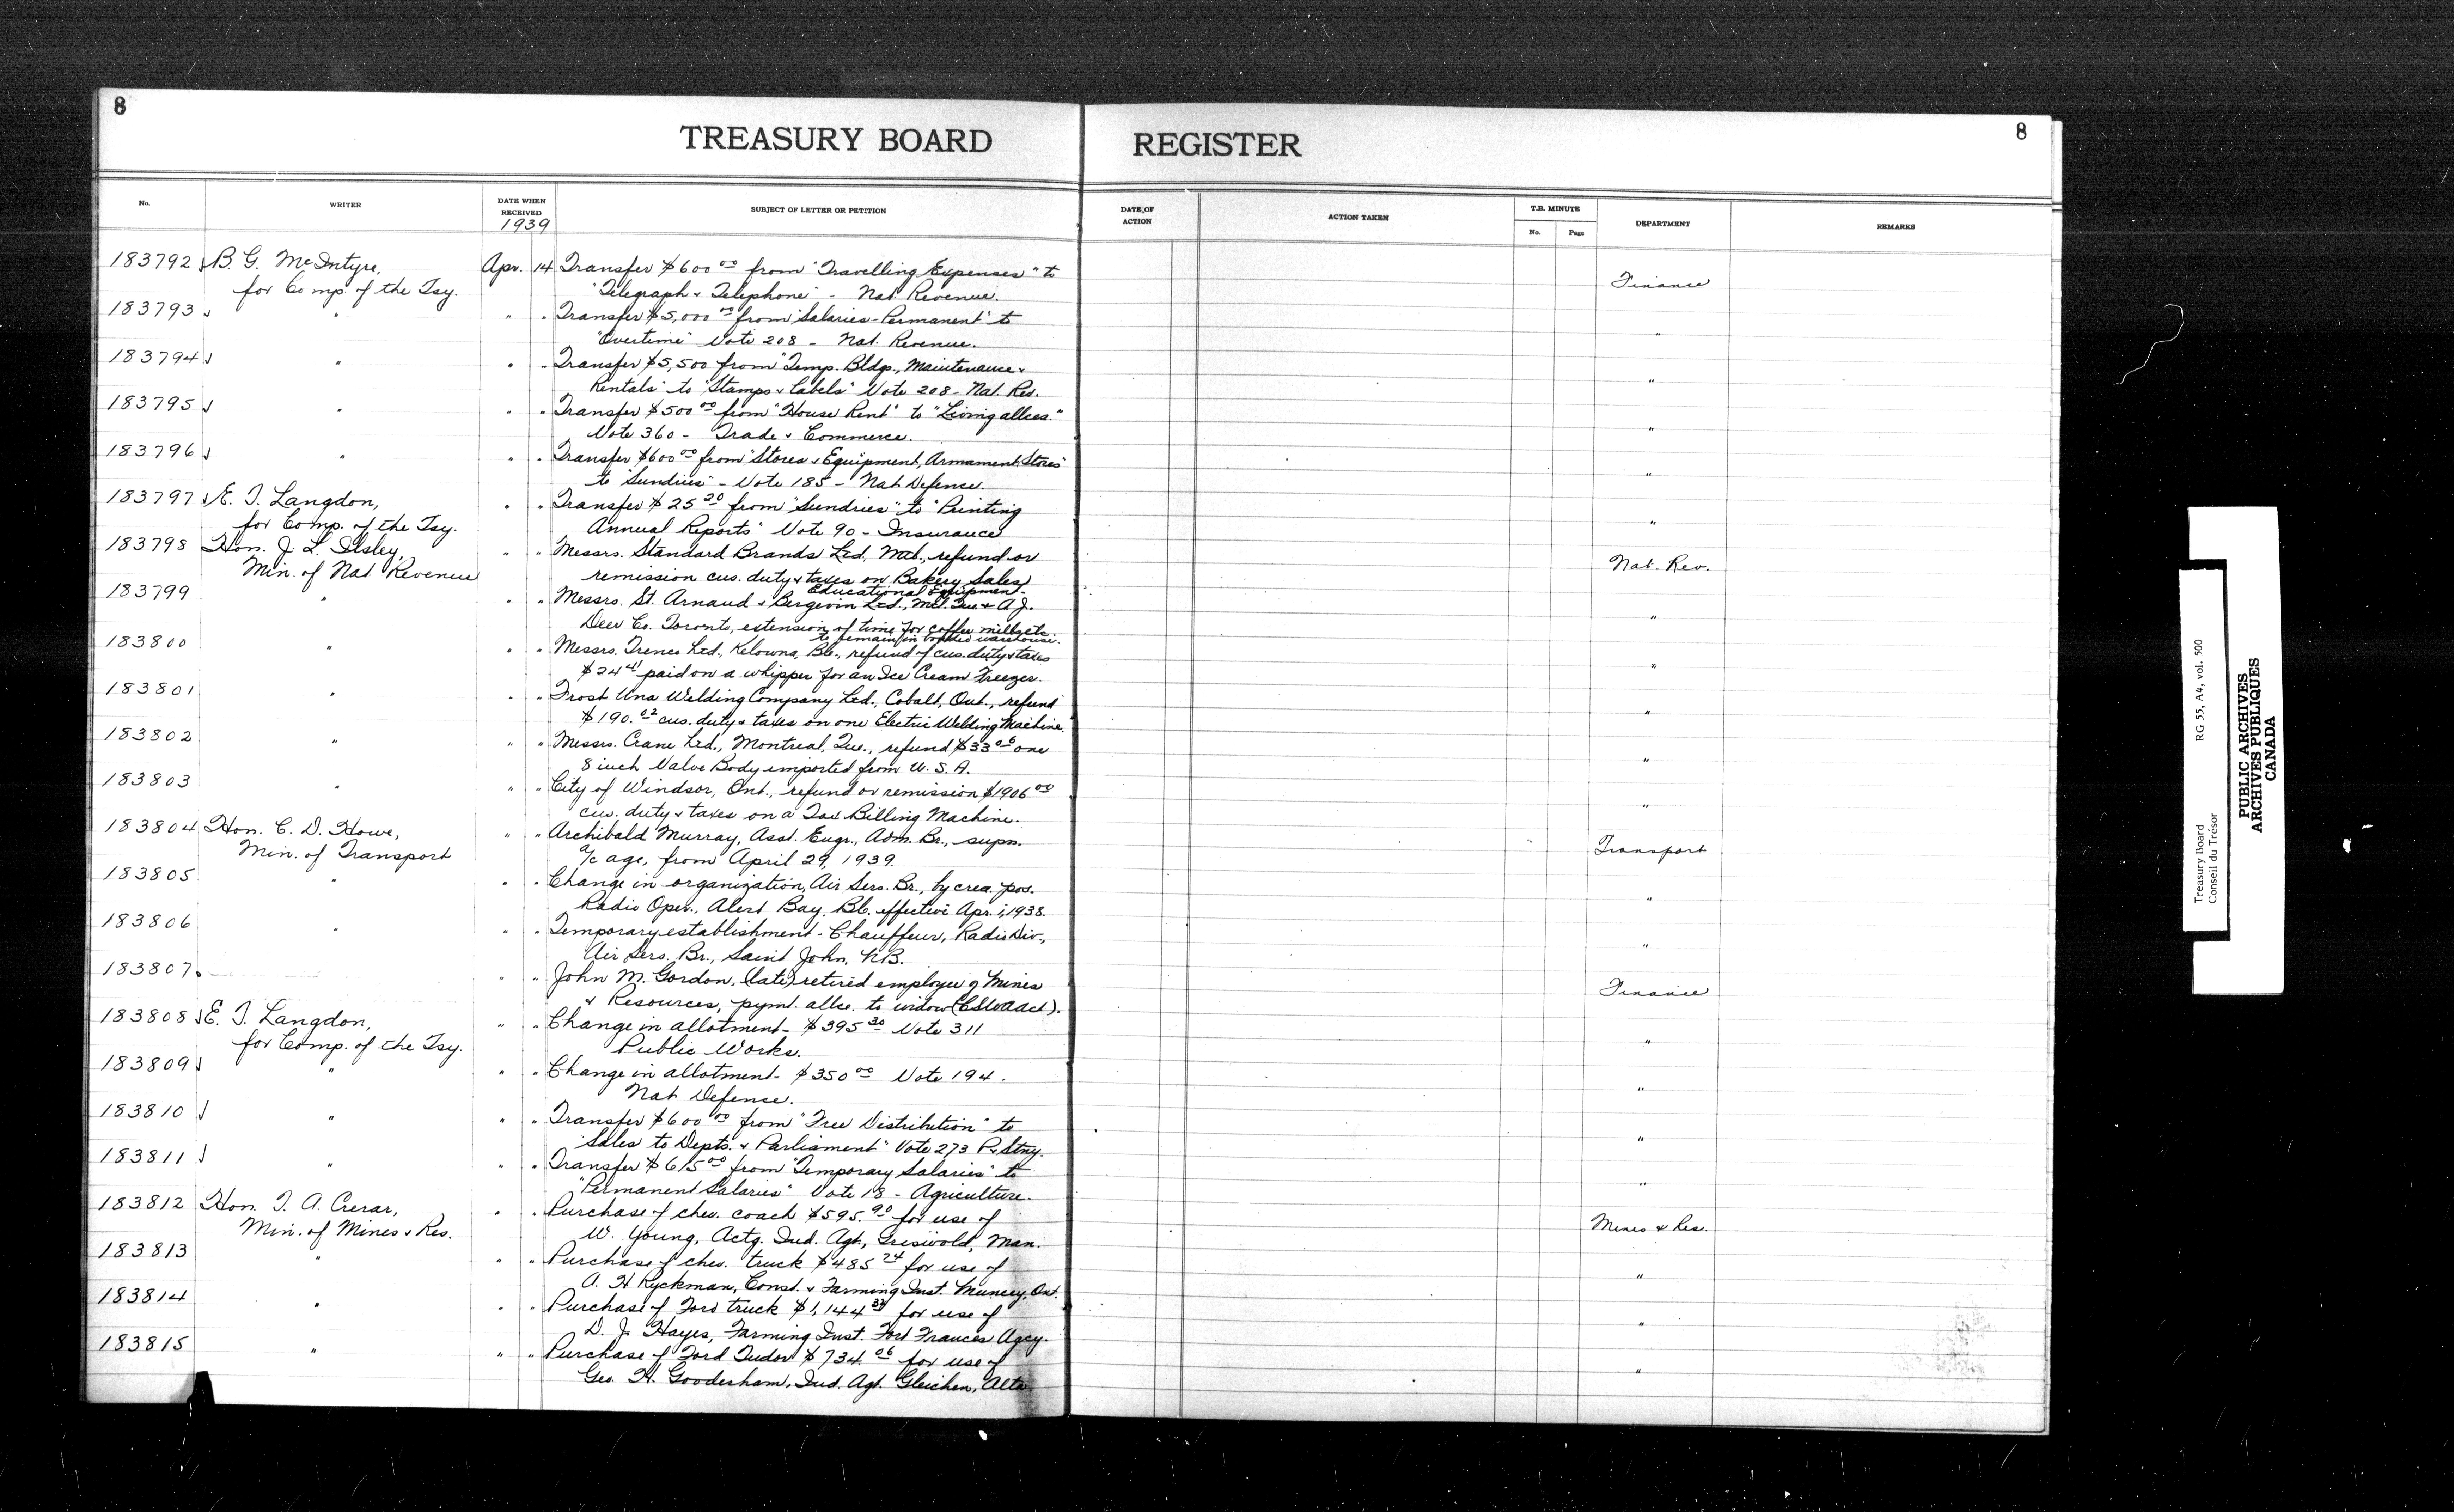 8
8
TREASURY BOARD REGISTER
No.
WRITER
DATE WHEN RECEIVED
1939
SUBJECT OF LETTER OR PETITION
DATE OF ACTION
ACTION TAKEN
T.B. MINUTE
No.
Page
DEPARTMENT
REMARKS
183792 B. G. McIntyre, Apr. 14 Transfer $600 00 from "Travelling Expenses" to Finance
for Comp. of the Tsy. "Telegraph & Telephone" - Nat. Revenue.
183793 " " " Transfer $5,000 00 from "Salaries-Permanent" to "
"Overtime" Vote 208 - Nat. Revenue.
183794 " " " Transfer $5,500 from "Temp. Bldgs., Maintenance & "
Rentals" to "Stamps & Labels" Vote 208 - Nat. Rev.
183795 " " " Transfer $500 00 from "House Rent" to "Living allces." "
Vote 360 - Trade & Commerce.
183796 " " " Transfer $600 00 from "Stores & Equipment, Armament Stores" "
to "Sundries" - Vote 185 - Nat Defence.
183797 E. T. Langdon, " " Transfer $25 20 from "Sundries" to "Printing "
for Comp. of the Tsy. Annual Reports" Vote 90 - Insurance
183798 Hon. J. L. Ilsley, " " Messrs. Standard Brands Ltd. Mtl., refund or Nat. Rev.
Min. of Nat. Revenue remission cus. duty & taxes on Bakery Sales
Educational Equipment.
183799 " " " Messrs. St. Arnaud & Bergevin Ltd., Mtl. Que. & A. J. "
Deer Co. Toronto, extension of time for coffee mills etc.
to remain in bonded warehouse.
183800 " " " Messrs. Trench Ltd., Kelowna, BC., refund of cus. duty & taxes "
$24 41 paid on a whipper for an Ice Cream Freezer.
183801 " " " Frost Una Welding Company Ltd., Cobalt, Ont., refund "
$190. 02 cus. duty & taxes on one Electric Welding Machine.
183802 " " " Messrs. Crane Ltd., Montreal, Que., refund $33 06 one "
8 inch Valve Body imported from U. S. A.
183803 " " " City of Windsor, Ont., refund or remission $1906 08 "
cus. duty & taxes on a Tax Billing Machine.
183804 Hon. C. D. Howe, " " Archibald Murray, Asst. Engr., Adm. Br., supn. Transport
Min. of Transport a/c age, from April 29, 1939.
183805 " " " Change in organization, Air Sers. Br., by crea. pos. "
Radio Oper., Alert Bay, BC. effective Apr. 1, 1938.
183806 " " " Temporary establishment - Chauffeur, Radio Div., "
Air Sers. Br., Saint John, N.B.
183807 " " John M. Gordon, (late) retired employee of Mines Finance
& Resources, pymt. allce. to widow (CSWA act).
183808 E. T. Langdon, " " Change in allotment - $395 30 Vote 311 "
for Comp. of the Tsy. Public Works.
183809 " " " Change in allotment - $350 00 Vote 194. "
Nat Defence.
183810 " " " Transfer $600 00 from "Free Distribution" to "
"Sales to Depts. & Parliament" Vote 273 P. & Stny.
183811 " " " Transfer $615 00 from "Temporary Salaries" to "
"Permanent Salaries" Vote 18 - Agriculture.
183812 Hon. T. A. Crerar, " " Purchase of chev. coach $595. 90 for use of Mines & Res.
Min. of Mines & Res. W. Young, Actg. Ind. Agt., Griswold, Man.
183813 " " " Purchase of chev. truck $485 24 for use of "
A. H Ryckman, Const. & Farming Inst. Muncey, Ont.
183814 " " " Purchase of Ford truck $1,144 33 for use of "
D. J. Hayes, Farming Inst. Fort Frances Agcy.
183815 " " " Purchase of Ford Tudor $734 06 for use of "
Geo. H. Gooderham, Ind. Agt. Gleichen, Alta
Treasury Board RG 55, A4, vol. 500
Conseil du Trésor
PUBLIC ARCHIVES
ARCHIVES PUBLIQUES
CANADA